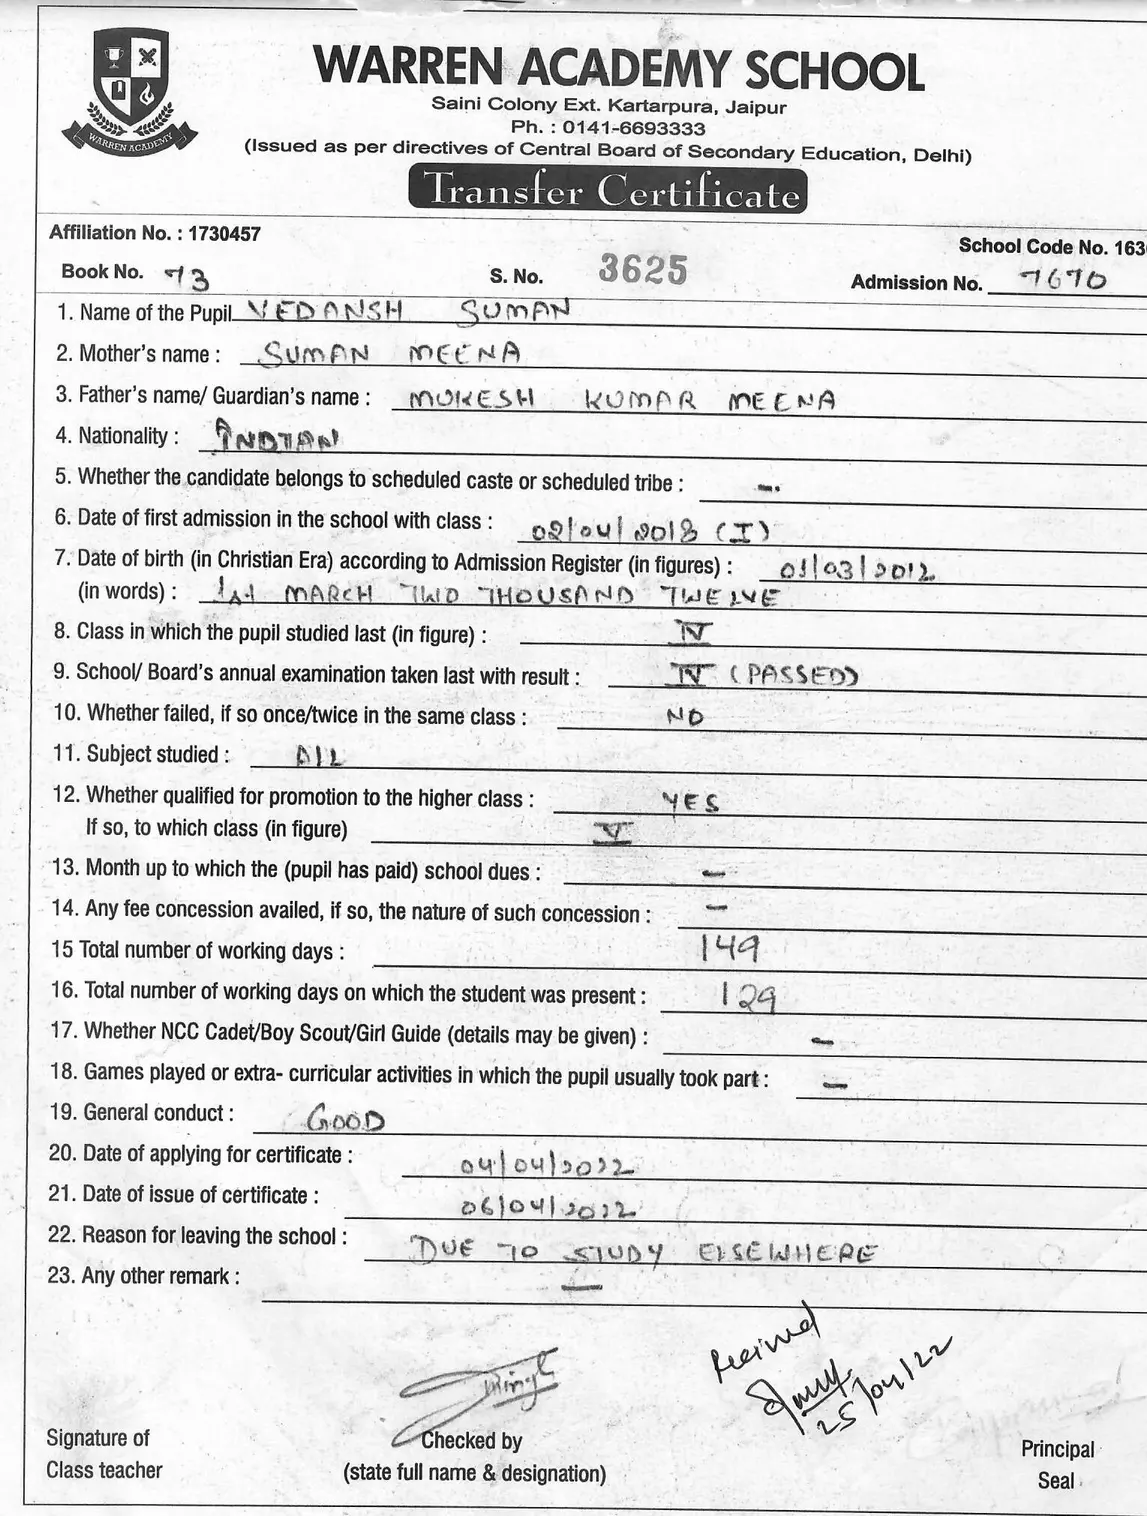 WARREN ACADEMY
WARREN ACADEMY SCHOOL
Saini Colony Ext. Kartarpura, Jaipur
Ph. : 0141-6693333
(Issued as per directives of Central Board of Secondary Education, Delhi)
Transfer Certificate
Affiliation No. : 1730457
School Code No. 163
Book No. 73 S. No. 3625 Admission No. 7670
1. Name of the Pupil VEDANSH SUMAN
2. Mother's name : SUMAN MEENA
3. Father's name/ Guardian's name : MUKESH KUMAR MEENA
4. Nationality : INDIAN
5. Whether the candidate belongs to scheduled caste or scheduled tribe : -
6. Date of first admission in the school with class : 02/04/2018 (I)
7. Date of birth (in Christian Era) according to Admission Register (in figures) : 01/03/2012
(in words) : 1st MARCH TWO THOUSAND TWELVE
8. Class in which the pupil studied last (in figure) : IV
9. School/ Board's annual examination taken last with result : IV (PASSED)
10. Whether failed, if so once/twice in the same class : NO
11. Subject studied : ALL
12. Whether qualified for promotion to the higher class : YES
If so, to which class (in figure) V
13. Month up to which the (pupil has paid) school dues : -
14. Any fee concession availed, if so, the nature of such concession : -
15 Total number of working days : 149
16. Total number of working days on which the student was present : 129
17. Whether NCC Cadet/Boy Scout/Girl Guide (details may be given) : -
18. Games played or extra- curricular activities in which the pupil usually took part : -
19. General conduct : GOOD
20. Date of applying for certificate : 04/04/2022
21. Date of issue of certificate : 06/04/2022
22. Reason for leaving the school : DUE TO STUDY ELSEWHERE
23. Any other remark : -
Received
25/04/22
Signature of
Class teacher
Checked by
(state full name & designation)
Principal
Seal